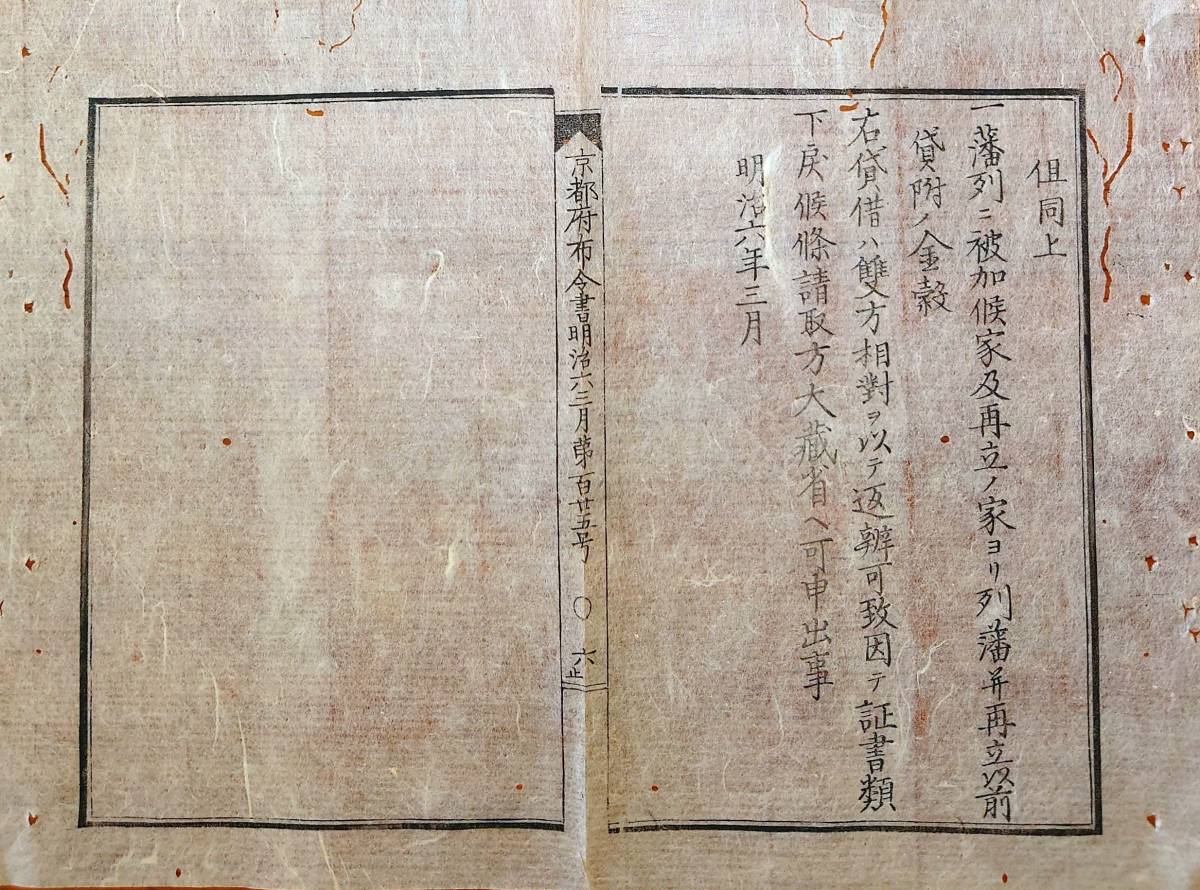 但同上
一藩列ニ被加候家及再立ノ家ヨリ列藩并再立以前
貸附ノ金穀
右貸借ハ雙方相對ヲ以テ返辨可致因テ証書類
下戻候條請取方大藏省ヘ可申出事
明治六年三月
京都府布令書明治六三月第百廿五号 〇 六止